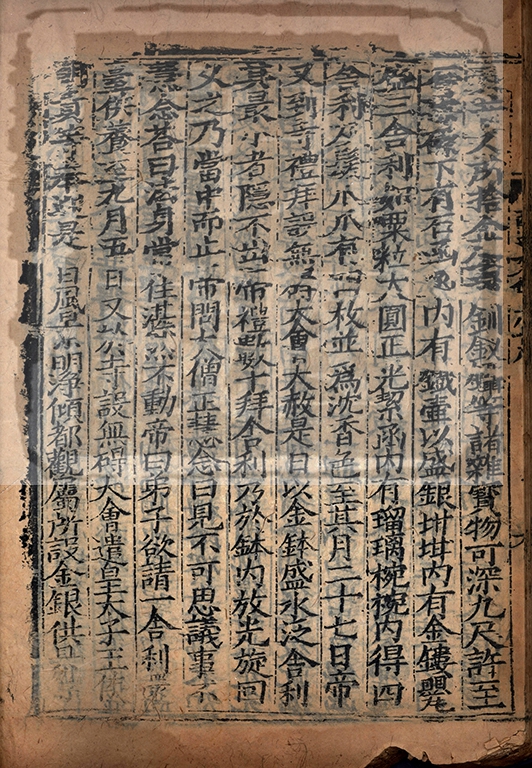 人所捨金 釧釵鑷等諸雜寶物可深九尺許至
下有石函 內有鐵壷以盛銀坩坩內有金鏤罌
盛三舍利如粟粒大圓正光㓗函內有瑠璃椀椀內得四
舍利及髮爪爪有四枚並爲沈香色至其月二十七日帝
又到寺禮拜設無碍大會大赦是日以金鉢盛水泛舍利
其最小者隱不出帝禮數十拜舍利乃於鉢內放光旋回
久之乃當中而止帝問大僧正慧念曰見不可思議事不
慧念荅曰法身常住湛然不動帝曰弟子欲請一舍利還
臺供養至九月五日又於寺設無碍大會遣皇太子王侯
朝貴等奉迎是日風景明淨傾都觀屬所設金銀供具